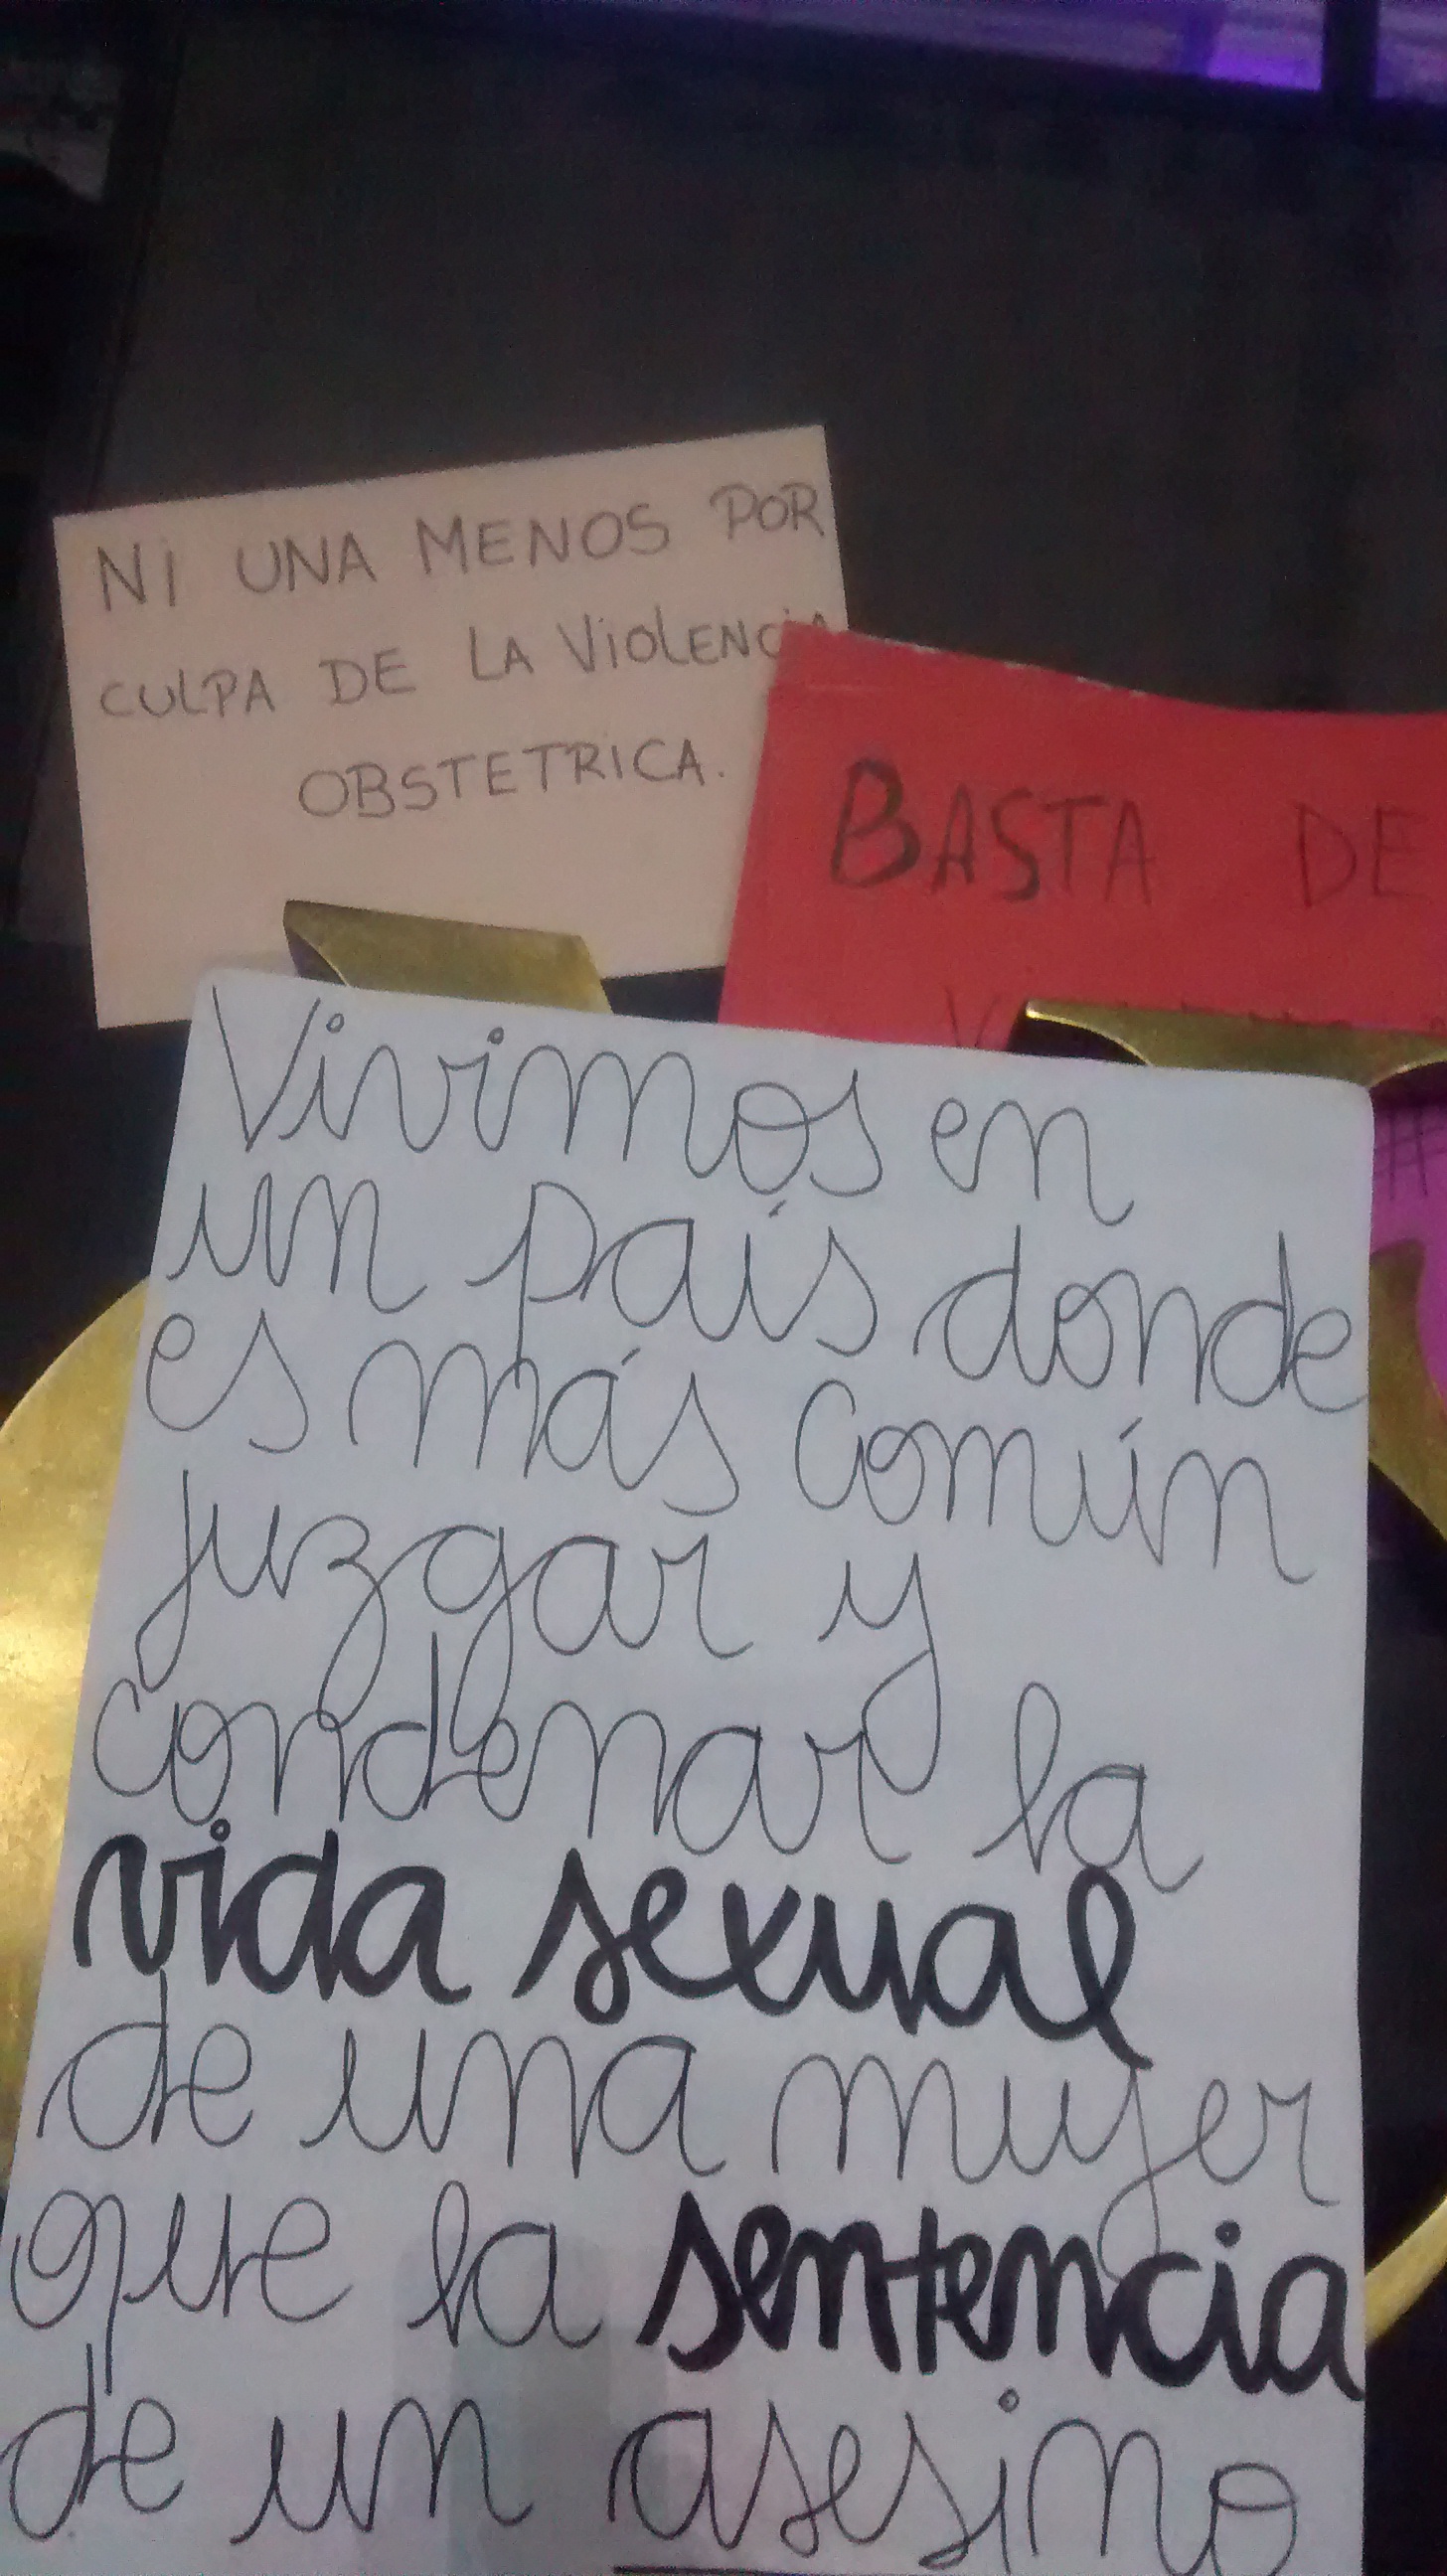 NI UNA MENOS POR
CULPA DE LA VIOLENCIA
OBSTETRICA.
BASTA DE
Vivimos en
un país donde
es más común
juzgar y
condenar la
vida sexual
de una mujer
que la sentencia
de un asesino